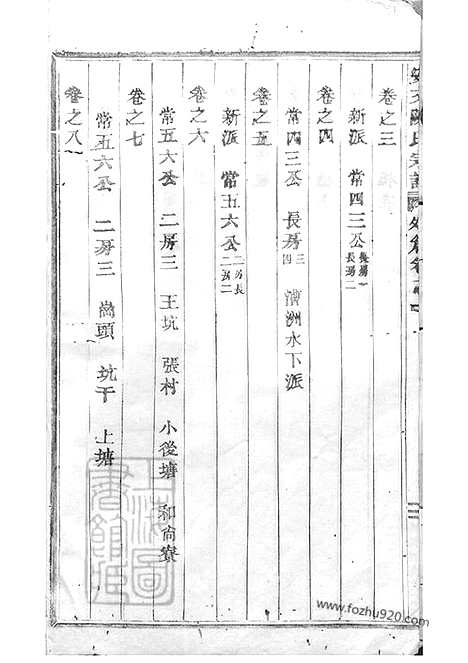 卷之三
新派 常四三公 長房一 長房二
卷之四
常四三公 長房三四 清洲水下派
卷之五
新派 常五六公 二房長 二房二
卷之六
常五六公 二房三 王坑 張村 小後塘 和尙寮
卷之七
常五六公 二房三 崗頭 坑干 上塘
卷之八
上海圖書館藏
www.fozhu920.com